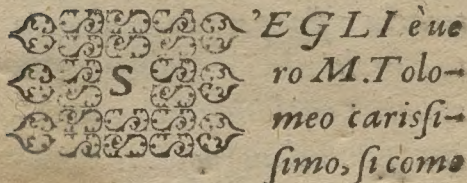 S'EGLI è ue
ro M.Tolo-
meo cariſſi-
ſimo, ſi come